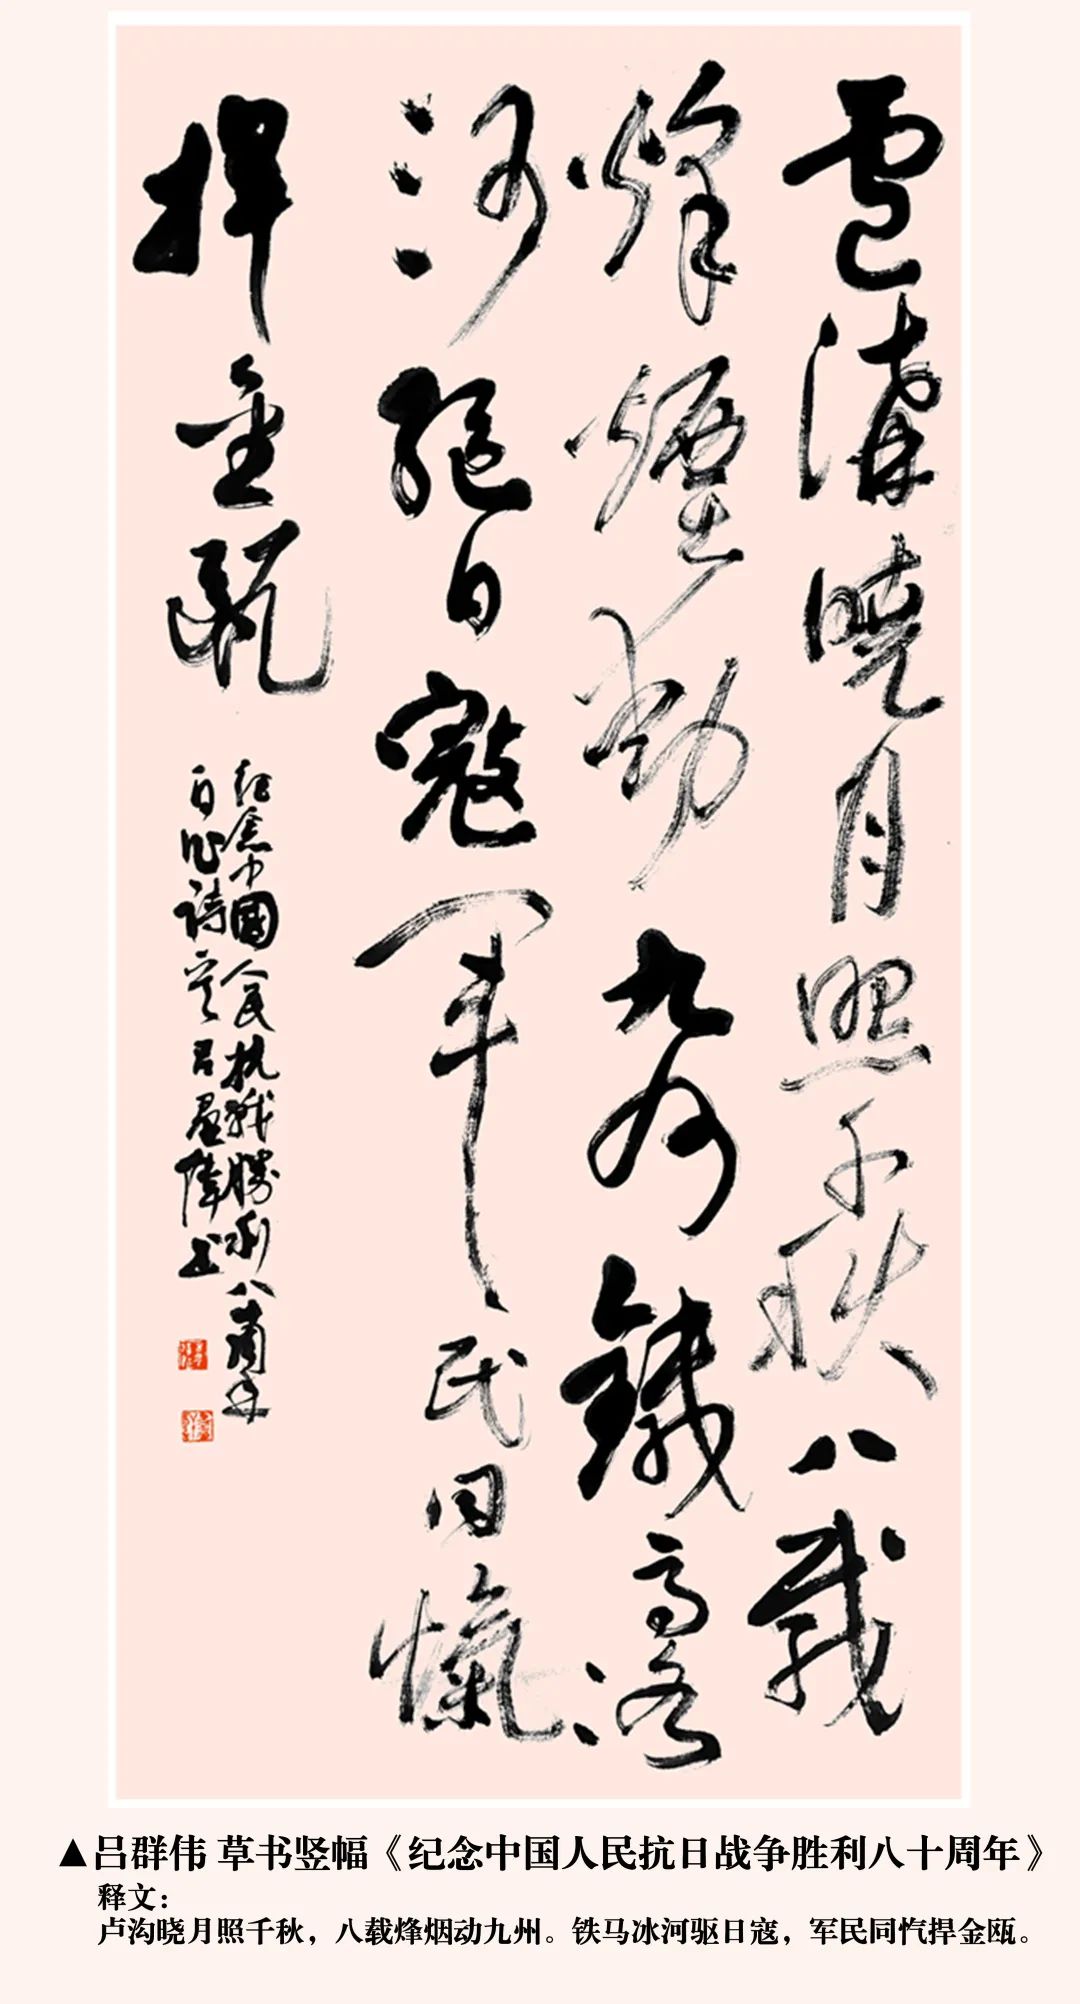 盧溝曉月照千秋八載
烽煙動九州鐵馬冰
河驅日寇軍民同愾
捍金甌
紀念中國人民抗戰勝利八十周年
自作詩 吕群偉书
▲吕群伟 草书竖幅《纪念中国人民抗日战争胜利八十周年》
释文：
卢沟晓月照千秋，八载烽烟动九州。铁马冰河驱日寇，军民同忾捍金瓯。